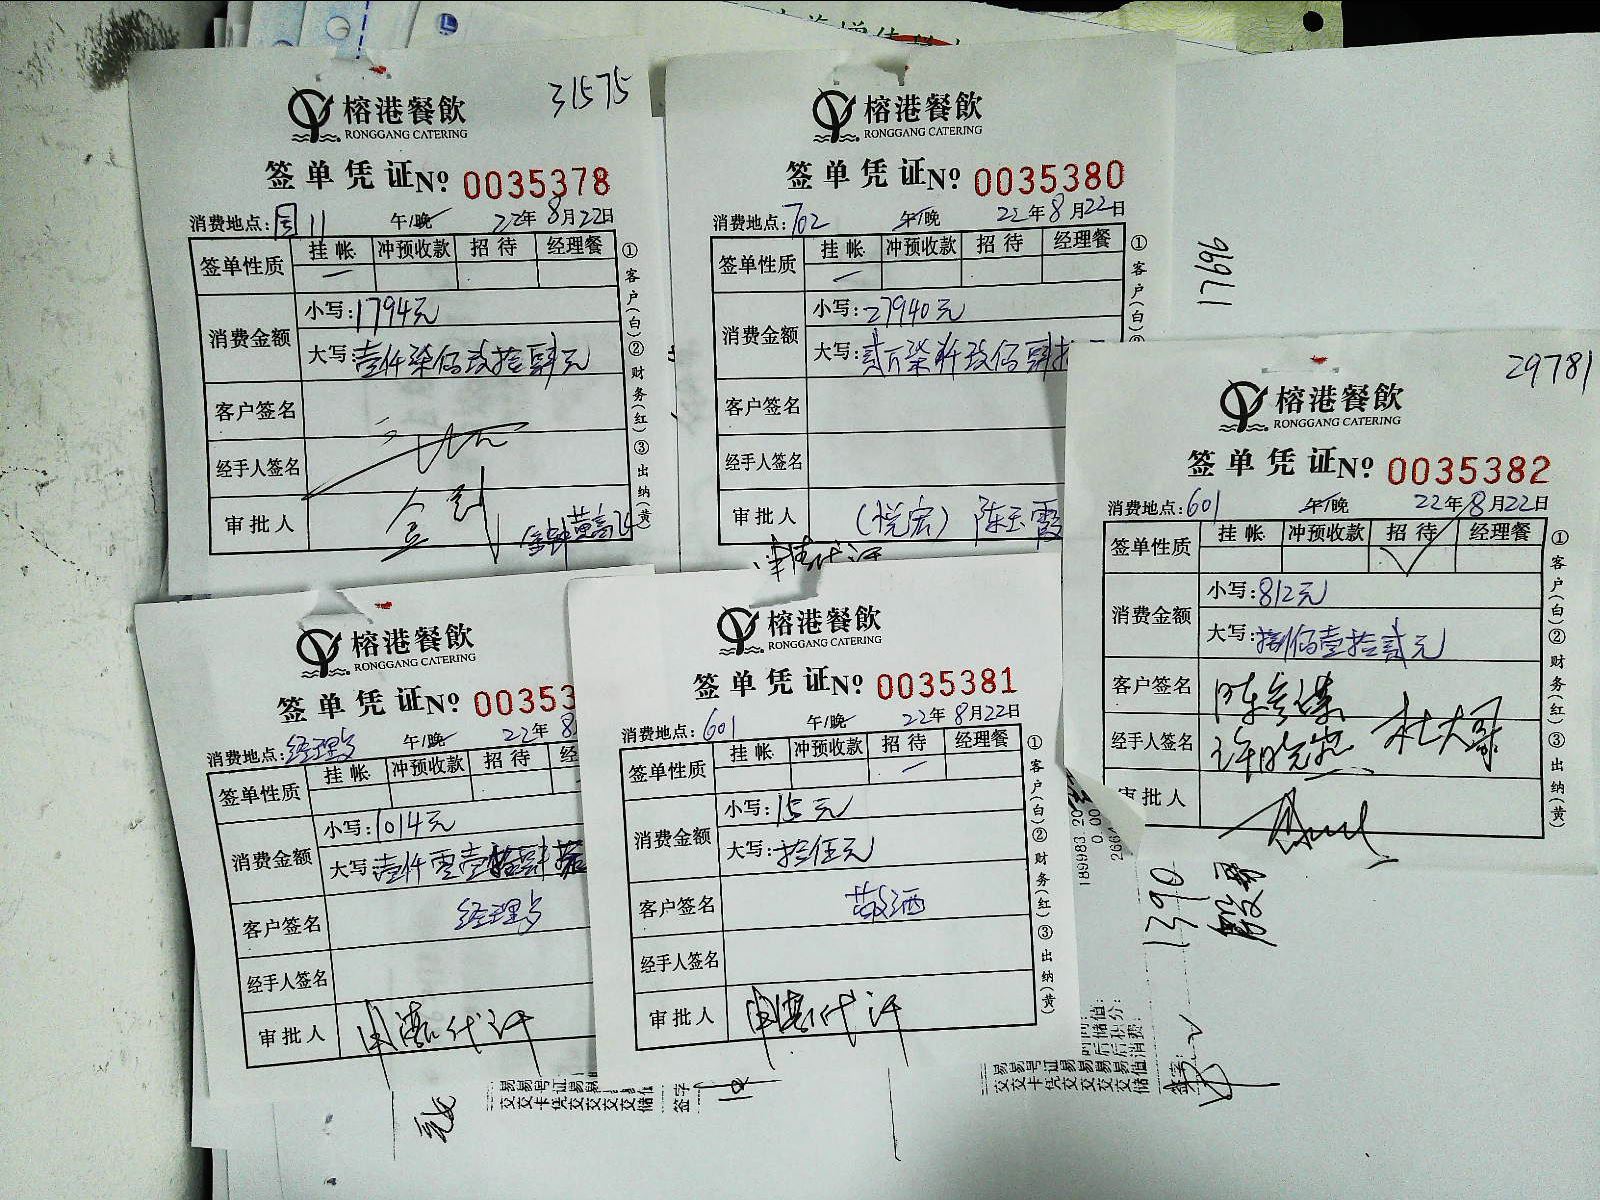 31575
榕港餐飲
RONGGANG CATERING
签单凭证 No 0035378
消费地点: 11 午/晚 22年8月22日
签单性质 挂帐 冲预收款 招待 经理餐
消费金额 小写: 1794元
大写: 壹仟柒佰玖拾肆元
客户签名
经手人签名
审批人
①客户(白)②财务(红)③出纳(黄)
榕港餐飲
RONGGANG CATERING
签单凭证 No 0035380
消费地点: 702 午/晚 22年8月22日
签单性质 挂帐 冲预收款 招待 经理餐
消费金额 小写: 27940元
大写: 贰万柒仟玖佰肆
客户签名
经手人签名
审批人 (悦宏) 陈玉霞
①客户(白)
17966
29781
榕港餐飲
RONGGANG CATERING
签单凭证 No 0035382
消费地点: 601 午/晚 22年8月22日
签单性质 挂帐 冲预收款 招待 经理餐
消费金额 小写: 812元
大写: 捌佰壹拾贰元
客户签名
经手人签名 许晓燕 杜大哥
审批人
①客户(白)②财务(红)③出纳(黄)
榕港餐飲
RONGGANG CATERING
签单凭证 No 00353
消费地点: 经理 午/晚 22年8
签单性质 挂帐 冲预收款 招待 经
消费金额 小写: 1014元
大写: 壹仟零壹拾肆
客户签名 经理
经手人签名
审批人
榕港餐飲
RONGGANG CATERING
签单凭证 No 0035381
消费地点: 601 午/晚 22年8月22日
签单性质 挂帐 冲预收款 招待 经理餐
消费金额 小写: 15元
大写: 拾伍元
客户签名 敬酒
经手人签名
审批人
①客户(白)②财务(红)③出纳(黄)
189983
0.00
1390
签字:
签字